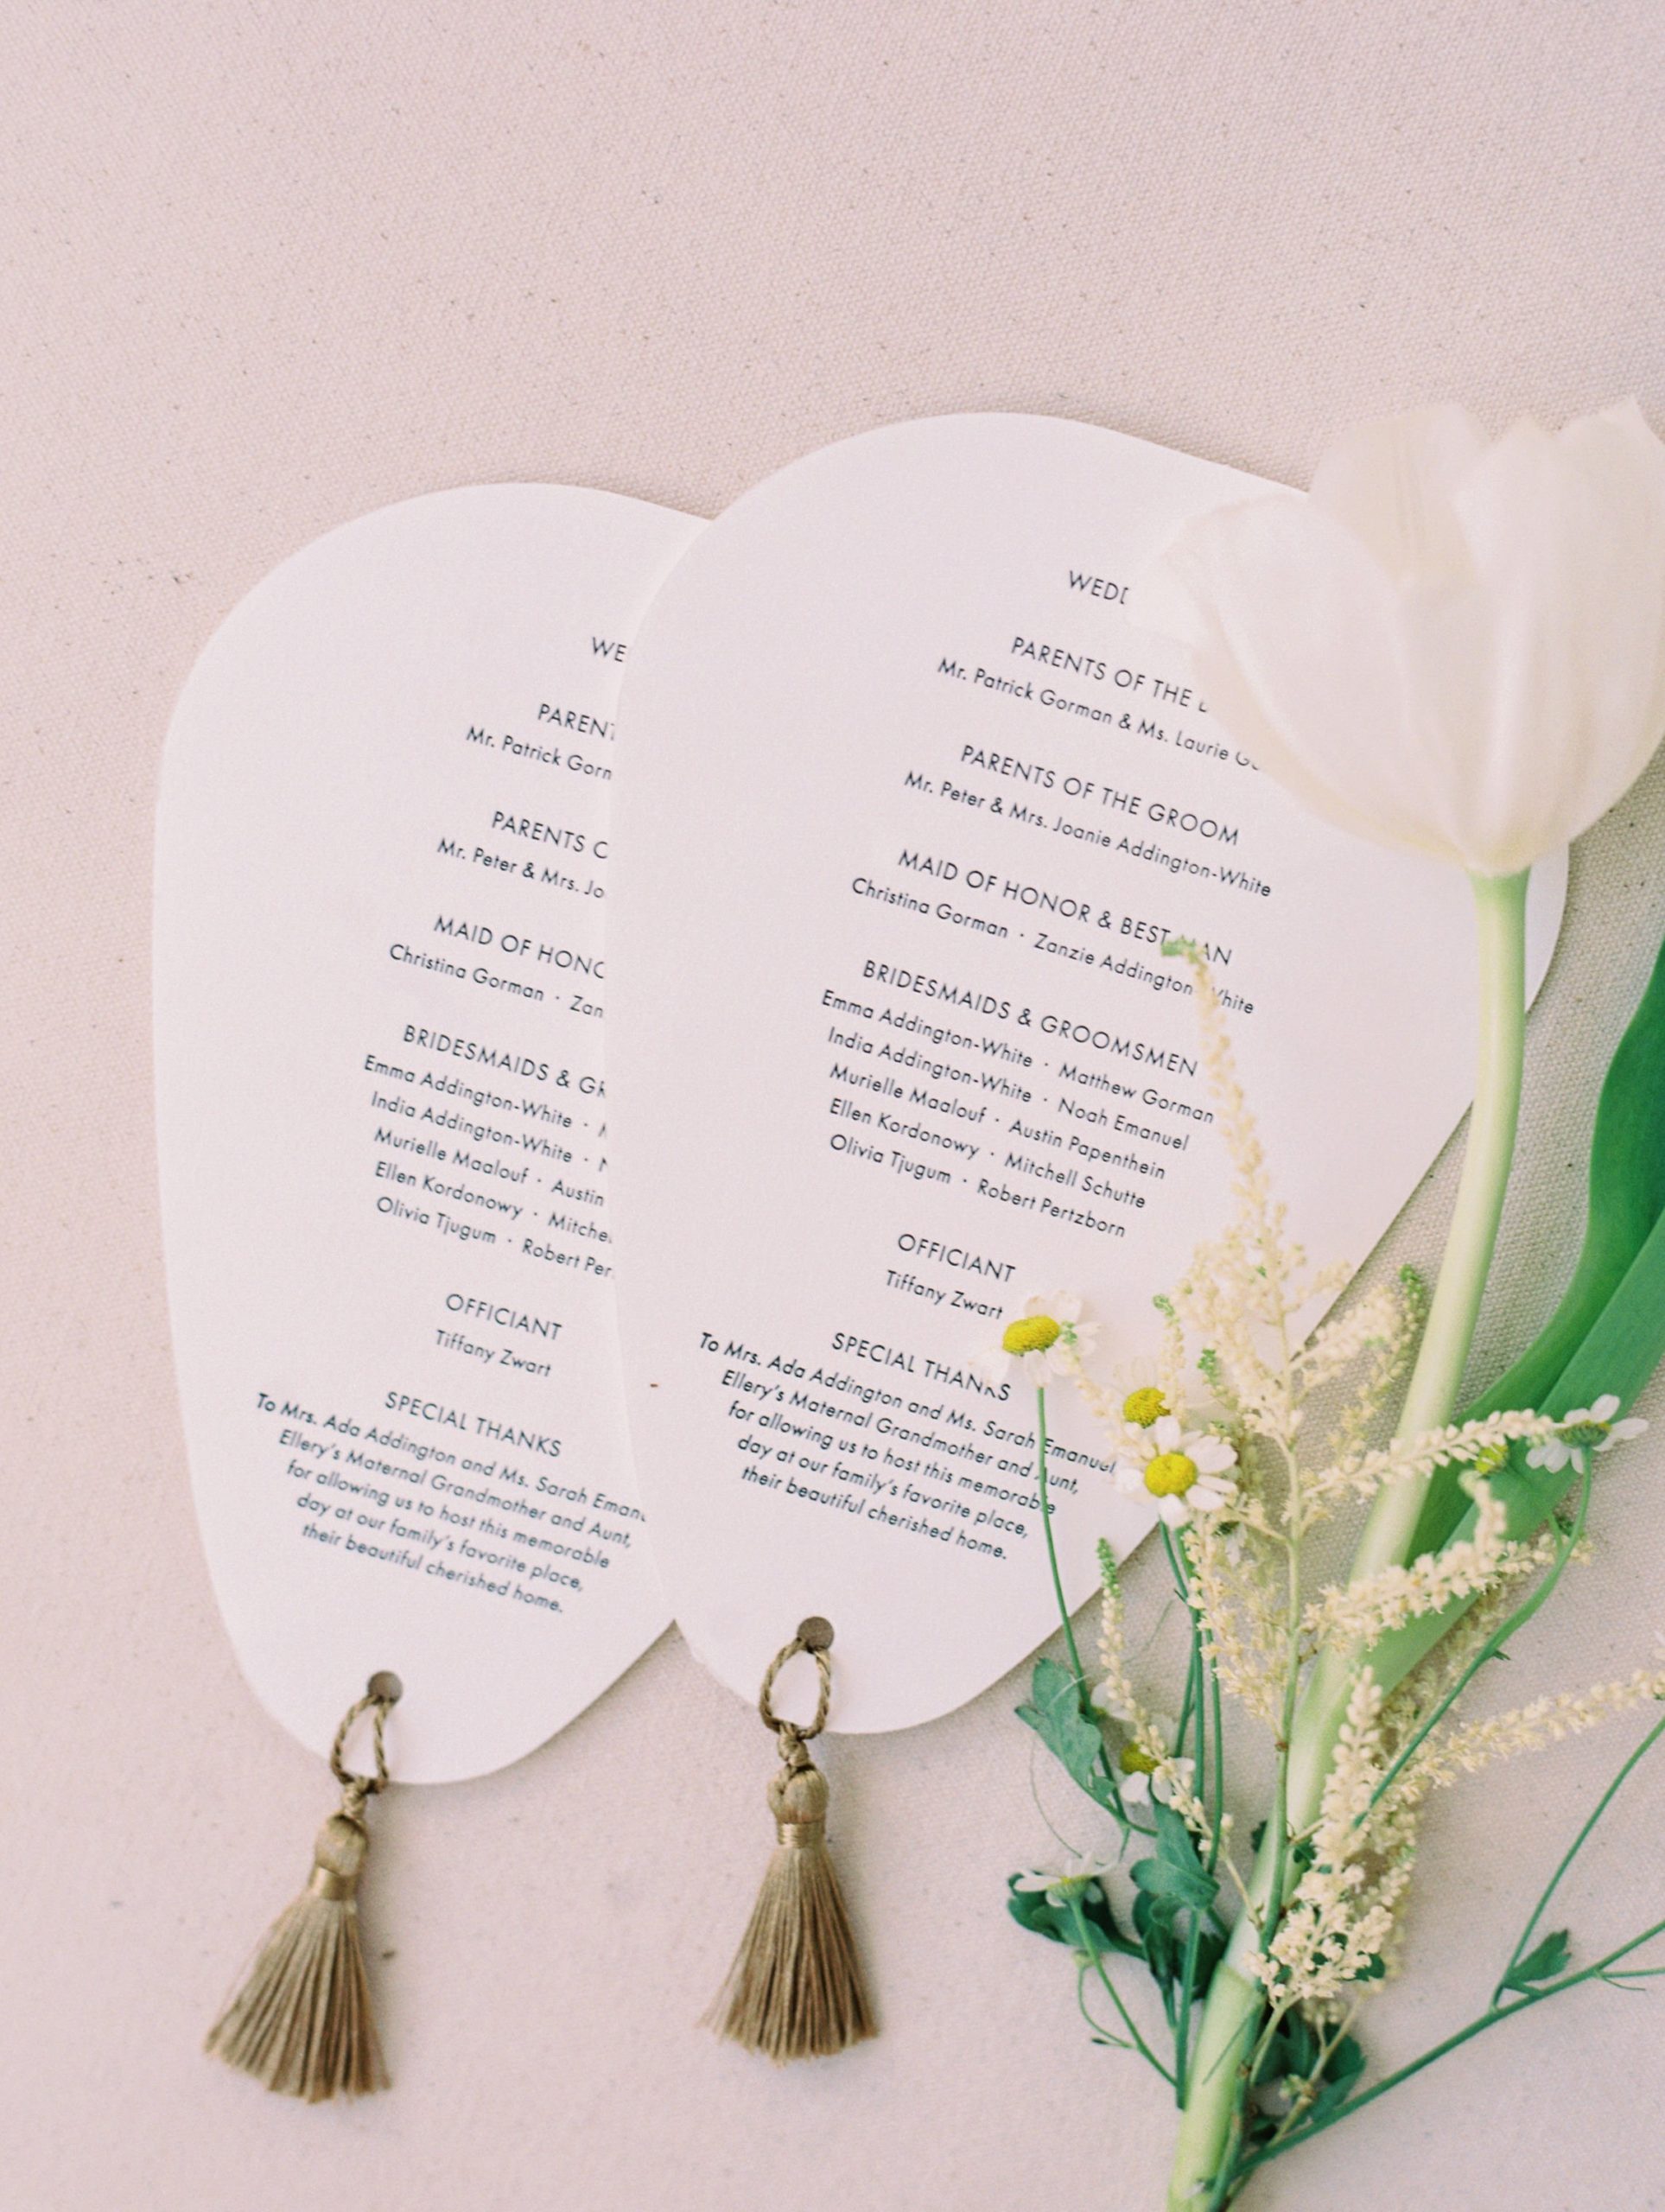 PARENTS OF THE
Mr. Patrick Gorman & Ms. Laurie
PARENTS OF THE GROOM
Mr. Peter & Mrs. Joanie Addington-White
MAID OF HONOR & BEST MAN
Christina Gorman · Zanzie Addington White
BRIDESMAIDS & GROOMSMEN
Emma Addington-White · Matthew Gorman
India Addington-White · Noah Emanuel
Murielle Maalouf · Austin Papenthein
Ellen Kordonowy · Mitchell Schutte
Olivia Tjugum · Robert Pertzborn
OFFICIANT
Tiffany Zwart
SPECIAL THANKS
To Mrs. Ada Addington and Ms. Sarah Emanuel,
Ellery's Maternal Grandmother and Aunt,
for allowing us to host this memorable
day at our family's favorite place,
their beautiful cherished home.
Mr. Patrick
PARENTS
Mr. Peter & Mrs.
MAID OF
Christina Gorman ·
BRIDESMAIDS &
Emma Addington-White ·
India Addington-White ·
Murielle Maalouf · Austin
Ellen Kordonowy ·
Olivia Tjugum · Robert
OFFICIANT
Tiffany Zwart
SPECIAL THANKS
To Mrs. Ada Addington and Ms. Sarah
Ellery's Maternal Grandmother and Aunt,
for allowing us to host this memorable
day at our family's favorite place,
their beautiful cherished home.